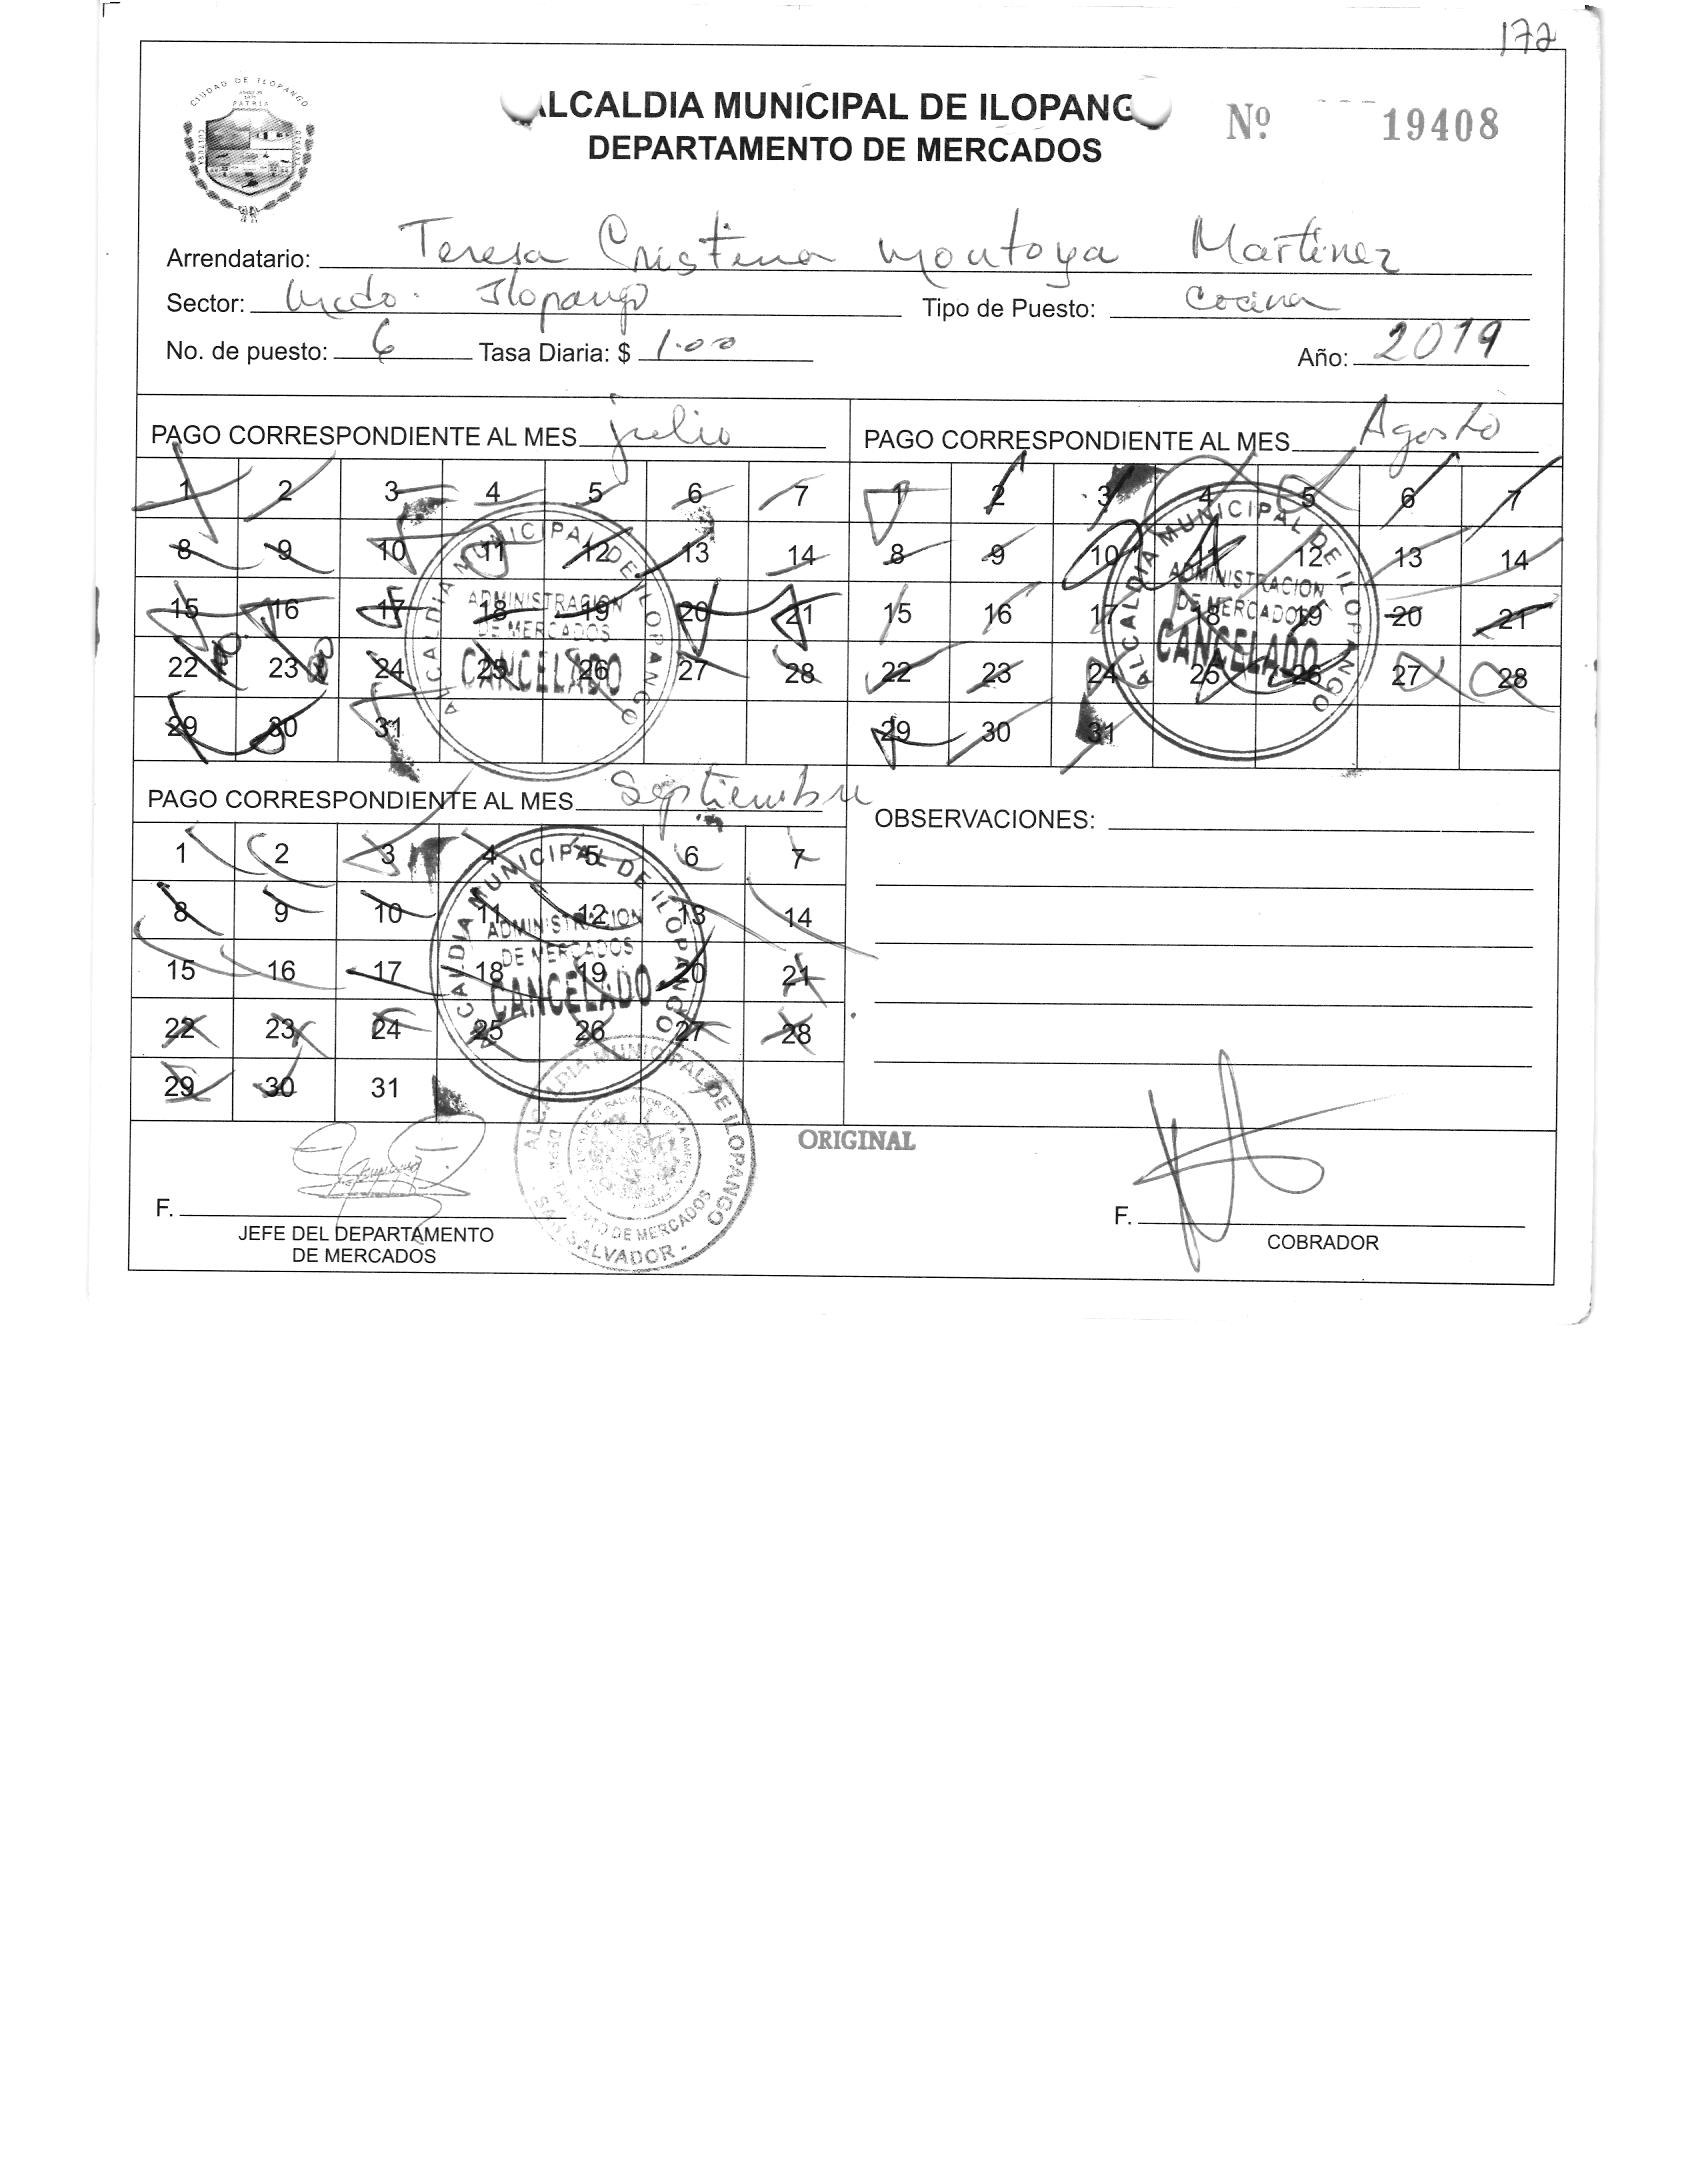 172
CIUDAD DE ILOPANGO
PATRIA
ALCALDIA MUNICIPAL DE ILOPANG
DEPARTAMENTO DE MERCADOS
Nº 19408
Arrendatario: Teresa Cristina Montoya Martinez
Sector: Mcdo. Ilopango Tipo de Puesto: Cocina
No. de puesto: 6 Tasa Diaria: $ 1.00 Año: 2019
PAGO CORRESPONDIENTE AL MES julio
1 2 3 4 5 6 7
8 9 10 11 12 13 14
15 16 17 18 19 20 21
22 23 24 25 26 27 28
29 30 31
ALCALDIA MUNICIPAL DE ILOPANGO
ADMINISTRACION
DE MERCADOS
CANCELADO
PAGO CORRESPONDIENTE AL MES Agosto
1 2 3 4 5 6 7
8 9 10 11 12 13 14
15 16 17 18 19 20 21
22 23 24 25 26 27 28
29 30 31
ALCALDIA MUNICIPAL DE ILOPANGO
ADMINISTRACION
DE MERCADOS
CANCELADO
PAGO CORRESPONDIENTE AL MES Septiembre
1 2 3 4 5 6 7
8 9 10 11 12 13 14
15 16 17 18 19 20 21
22 23 24 25 26 27 28
29 30 31
ALCALDIA MUNICIPAL DE ILOPANGO
ADMINISTRACION
DE MERCADOS
CANCELADO
OBSERVACIONES:
ORIGINAL
ALCALDIA MUNICIPAL DE ILOPANGO
DE MERCADOS
SAN SALVADOR -
F.
JEFE DEL DEPARTAMENTO
DE MERCADOS
F.
COBRADOR